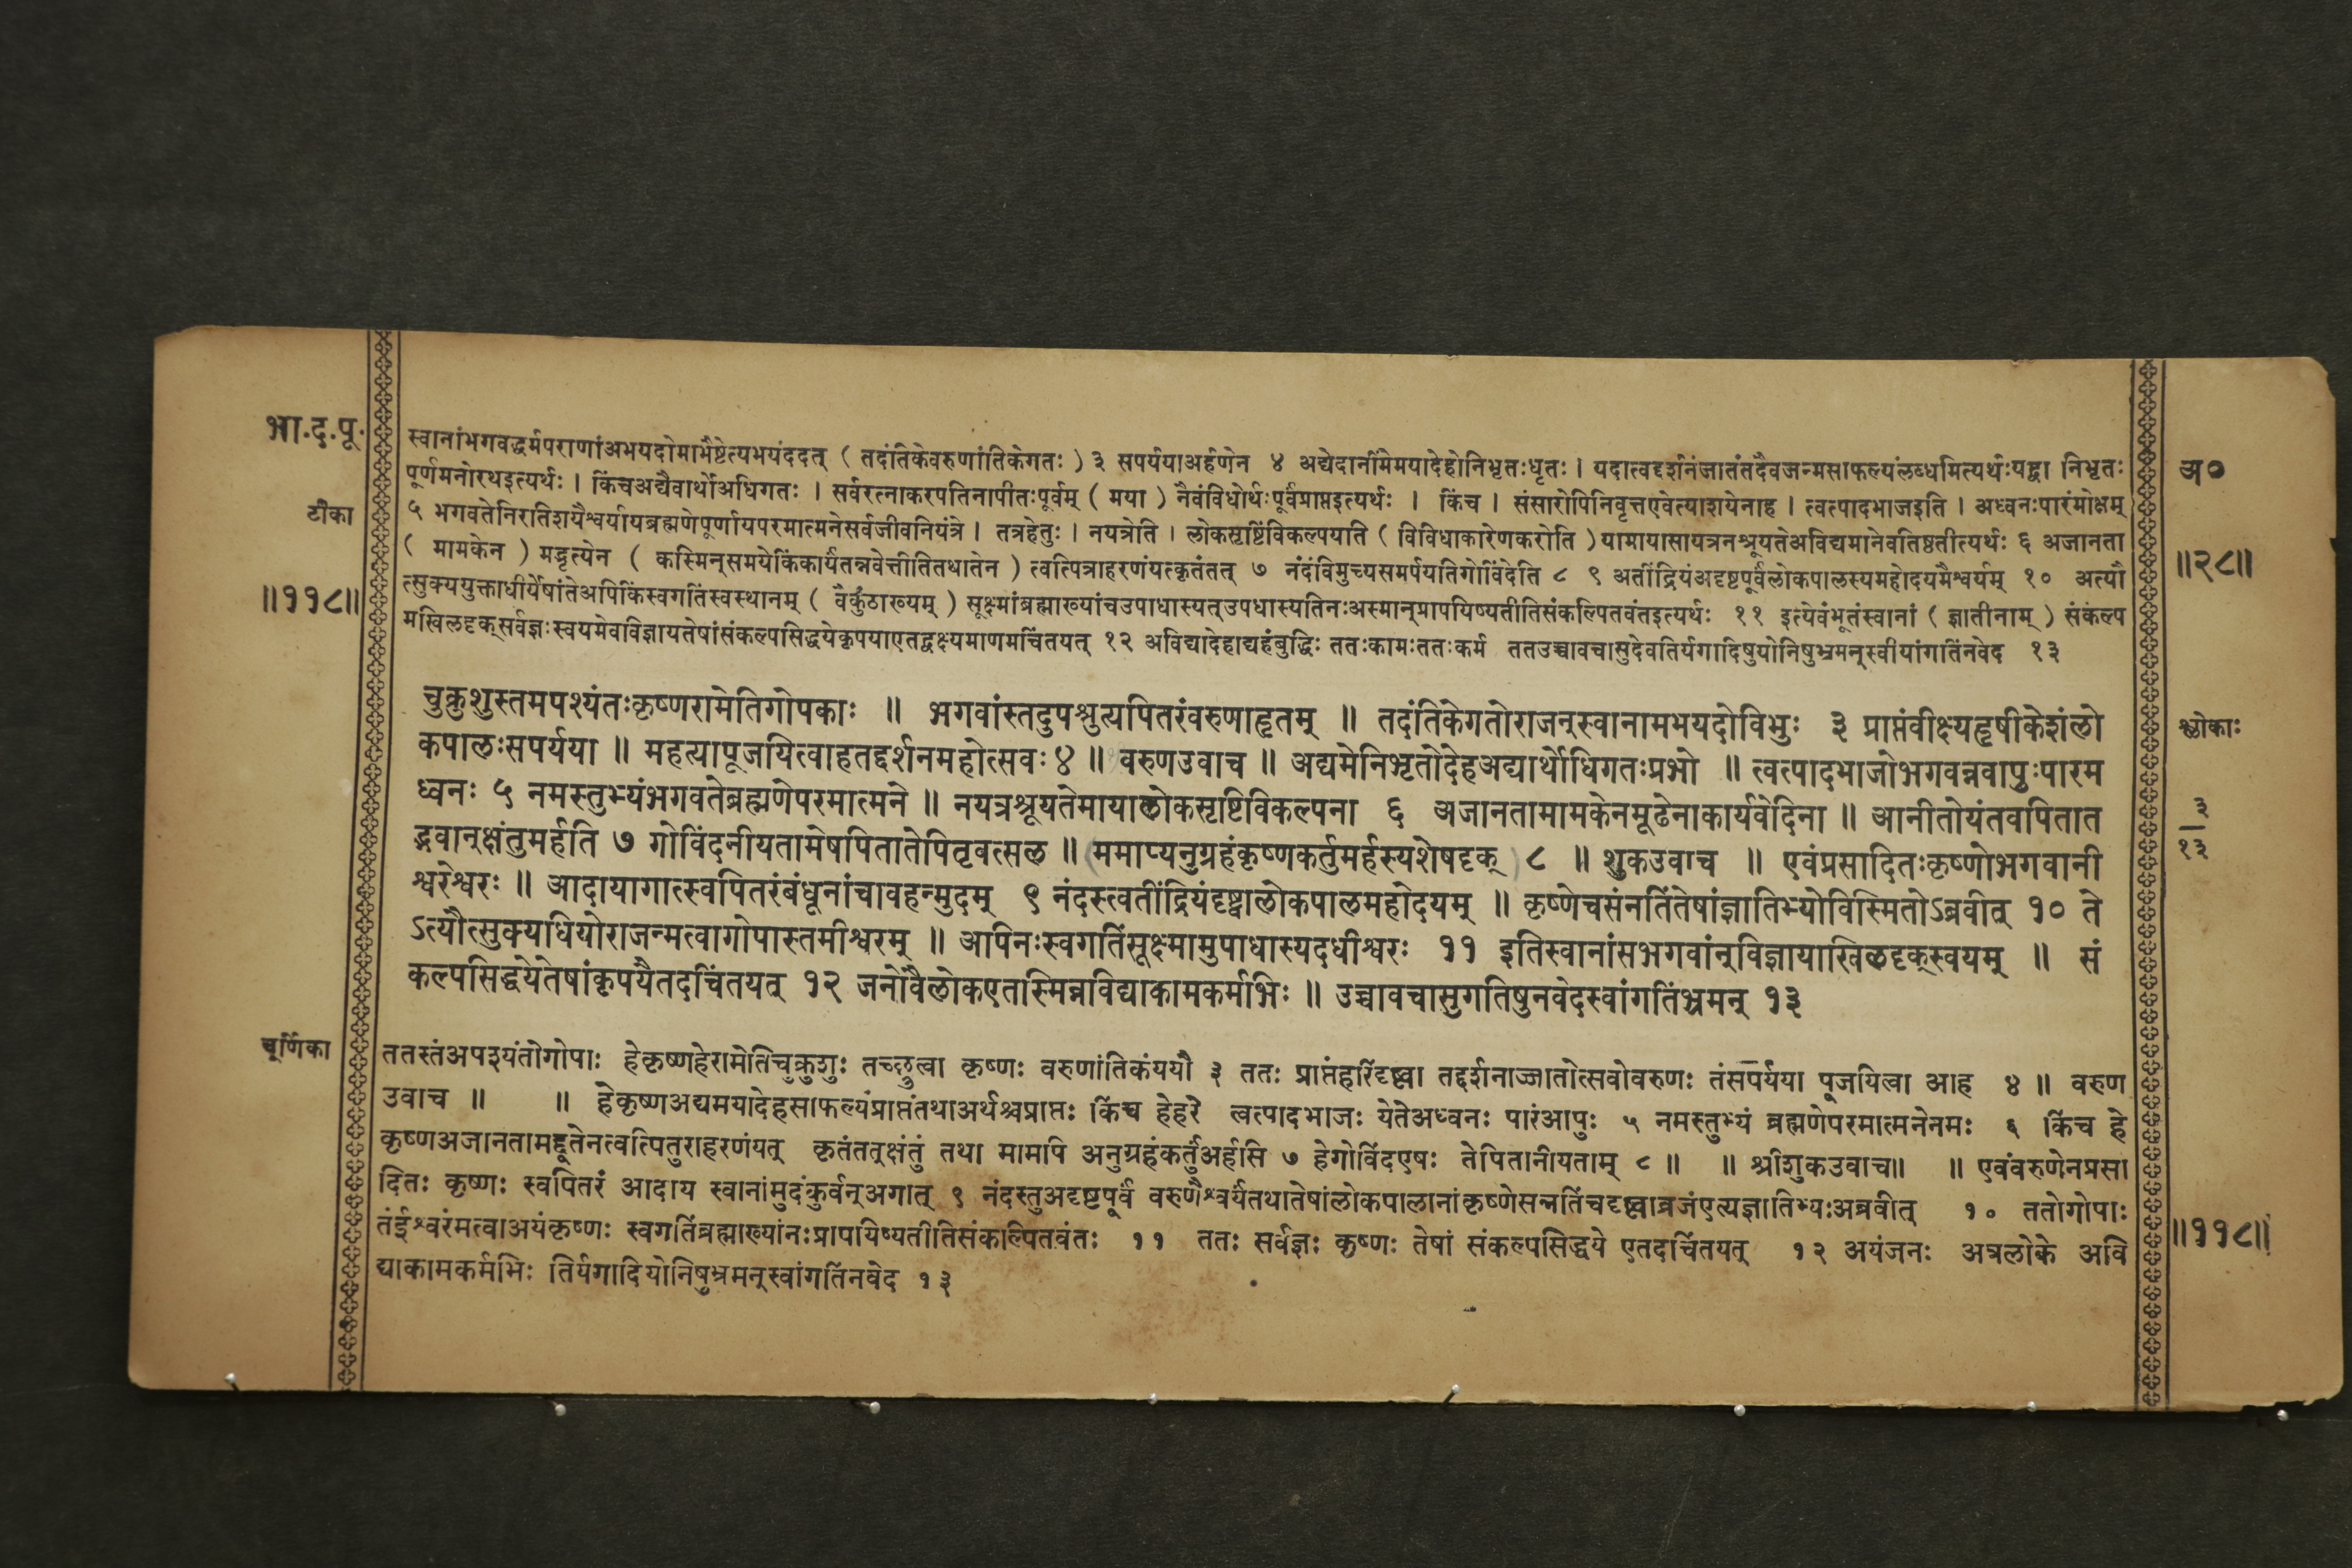 भा.द.पू.
टीका
॥११८॥
अ०
॥२८॥
स्वानांभगवद्धर्मपराणांअभयदोमाभैष्टेत्यभयंददत् ( तदंतिकेवरुणांतिकेगतः ) ३ सपर्ययाअर्हणेन ४ अद्येदानींमेमयादेहोनिभृतःधृतः । यदात्वद्दर्शनंजातंतदैवजन्मसाफल्यंलब्धमित्यर्थःयद्वा निभृतः
पूर्णमनोरथइत्यर्थः । किंचअद्यैवार्थोअधिगतः । सर्वरत्नाकरपतिनापीतःपूर्वम् ( मया ) नैवंविधोर्थःपूर्वंप्राप्तइत्यर्थः । किंच । संसारोपिनिवृत्तएवेत्याशयेनाह । त्वत्पादभाजइति । अध्वनःपारंमोक्षम्
५ भगवतेनिरतिशयैश्वर्यायब्रह्मणेपूर्णायपरमात्मनेसर्वजीवनियंत्रे । तत्रहेतुः । नयत्रेति । लोकसृष्टिंविकल्पयति ( विविधाकारेणकरोति ) यामायासायत्रनश्रूयतेअविद्यमानेवतिष्ठतीत्यर्थः ६ अजानता
( मामकेन ) मद्भृत्येन ( कस्मिन्समयेकिंकार्यंतन्नवेत्तीतितथातेन ) त्वत्पित्राहरणंयत्कृतंतत् ७ नंदंविमुच्यसमर्पयतिगोविंदेति ८ ९ अतींद्रियंअदृष्टपूर्वंलोकपालस्यमहोदयमैश्वर्यम् १० अत्यौ
त्सुक्ययुक्ताधीर्येषांतेअपिकिंस्वगतिंस्वस्थानम् ( वैकुंठाख्यम् ) सूक्ष्मांब्रह्माख्यांचउपाधास्यत्उपधास्यतिनःअस्मान्प्रापयिष्यतीतिसंकल्पितवंतइत्यर्थः ११ इत्येवंभूतंस्वानां ( ज्ञातीनाम् ) संकल्प
मखिलदृक्सर्वज्ञःस्वयमेवविज्ञायतेषांसंकल्पसिद्धयेकृपयाएतद्वक्ष्यमाणमचिंतयत् १२ अविद्यादेहाद्यहंबुद्धिः ततःकामःततःकर्म ततउच्चावचासुदेवतिर्यगादिषुयोनिषुभ्रमन्स्वीयांगतिंनवेद १३
चुक्रुशुस्तमपश्यंतःकृष्णरामेतिगोपकाः ॥ भगवांस्तदुपश्रुत्यपितरंवरुणाहृतम् ॥ तदंतिकेगतोराजन्स्वानामभयदोविभुः ३ प्राप्तंवीक्ष्यहृषीकेशंलो
कपालःसपर्यया ॥ महत्यापूजयित्वाहतद्दर्शनमहोत्सवः ४ ॥ वरुणउवाच ॥ अद्यमेनिभृतोदेहअद्यार्थोधिगतःप्रभो ॥ त्वत्पादभाजोभगवन्नवापुःपारम
ध्वनः ५ नमस्तुभ्यंभगवतेब्रह्मणेपरमात्मने ॥ नयत्रश्रूयतेमायालोकसृष्टिविकल्पना ६ अजानतामामकेनमूढेनाकार्यवेदिना ॥ आनीतोयंतवपितात
द्भवान्क्षंतुमर्हति ७ गोविंदनीयतामेषपितातेपितृवत्सल ॥ ममाप्यनुग्रहंकृष्णकर्तुमर्हस्यशेषदृक् ८ ॥ शुकउवाच ॥ एवंप्रसादितःकृष्णोभगवानी
श्वरेश्वरः ॥ आदायागात्स्वपितरंबंधूनांचावहन्मुदम् ९ नंदस्त्वतींद्रियंदृष्ट्वालोकपालमहोदयम् ॥ कृष्णेचसंनतिंतेषांज्ञातिभ्योविस्मितोऽब्रवीत् १० ते
ऽत्यौत्सुक्यधियोराजन्मत्वागोपास्तमीश्वरम् ॥ अपिनःस्वगतिंसूक्ष्मामुपाधास्यदधीश्वरः ११ इतिस्वानांसभगवांन्विज्ञायाखिलदृक्स्वयम् ॥ सं
कल्पसिद्धयेतेषांकृपयैतदचिंतयत् १२ जनोवैलोकएतस्मिन्नविद्याकामकर्मभिः ॥ उच्चावचासुगतिषुनवेदस्वांगतिंभ्रमन् १३
श्लोकाः
३
१३
चूर्णिका
ततस्तंअपश्यंतोगोपाः हेकृष्णहेरामेतिचुक्रुशुः तच्छ्रुत्वा कृष्णः वरुणांतिकंययौ ३ ततः प्राप्तंहरिंदृष्ट्वा तद्दर्शनाज्जातोत्सवोवरुणः तंसपर्यया पूजयित्वा आह ४ ॥ वरुण
उवाच ॥ ॥ हेकृष्णअद्यमयादेहसाफल्यंप्राप्तंतथाअर्थश्चप्राप्तः किंच हेहरे त्वत्पादभाजः येतेअध्वनः पारंआपुः ५ नमस्तुभ्यं ब्रह्मणेपरमात्मनेनमः ६ किंच हे
कृष्णअजानतामद्दूतेनत्वत्पितुराहरणंयत् कृतंतत्क्षंतुं तथा मामपि अनुग्रहंकर्तुंअर्हसि ७ हेगोविंदएषः तेपितानीयताम् ८ ॥ ॥ श्रीशुकउवाच॥ ॥ एवंवरुणेनप्रसा
दितः कृष्णः स्वपितरं आदाय स्वानांमुदंकुर्वन्अगात् ९ नंदस्तुअदृष्टपूर्वं वरुणैश्वर्यंतथातेषांलोकपालानांकृष्णेसन्नतिंचदृष्ट्वाव्रजंएत्यज्ञातिभ्यःअब्रवीत् १० ततोगोपाः
तंईश्वरंमत्वाअयंकृष्णः स्वगतिंब्रह्माख्यांनःप्रापयिष्यतीतिसंकल्पितवंतः ११ ततः सर्वज्ञः कृष्णः तेषां संकल्पसिद्धये एतदचिंतयत् १२ अयंजनः अत्रलोके अवि
द्याकामकर्मभिः तिर्यगादियोनिषुभ्रमन्स्वांगतिंनवेद १३
॥११८॥